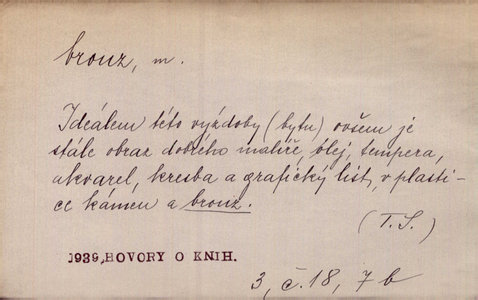 bronz, m.
Ideálem této výzdoby (bytu) ovšem je
stále obraz dobrého malíře, olej, tempera,
akvarel, kresba a grafický list, v plasti-
ce kámen a bronz.
(T. S.)
1939, HOVORY O KNIH.
3, č. 18, 7 b